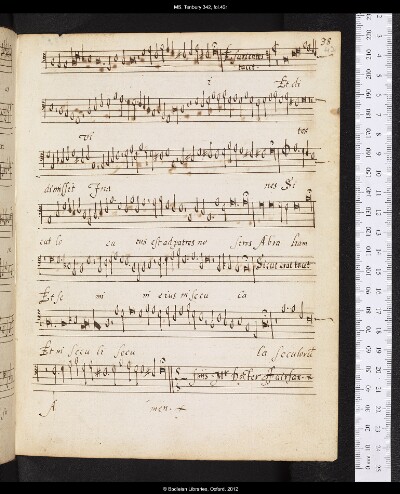 MS. Tenbury 342, fol.40r
38
tacit.
Et di
vi tes
dimissit Ina nes Si
cut lo cu tus est ad patres no stros Abra ham
Sicut erat tacit
Et se mi ni eius in secu la
Et in secu li secu la seculorū
A men.
finis. Mr docter Fairfax.
© Bodleian Libraries, Oxford, 2012